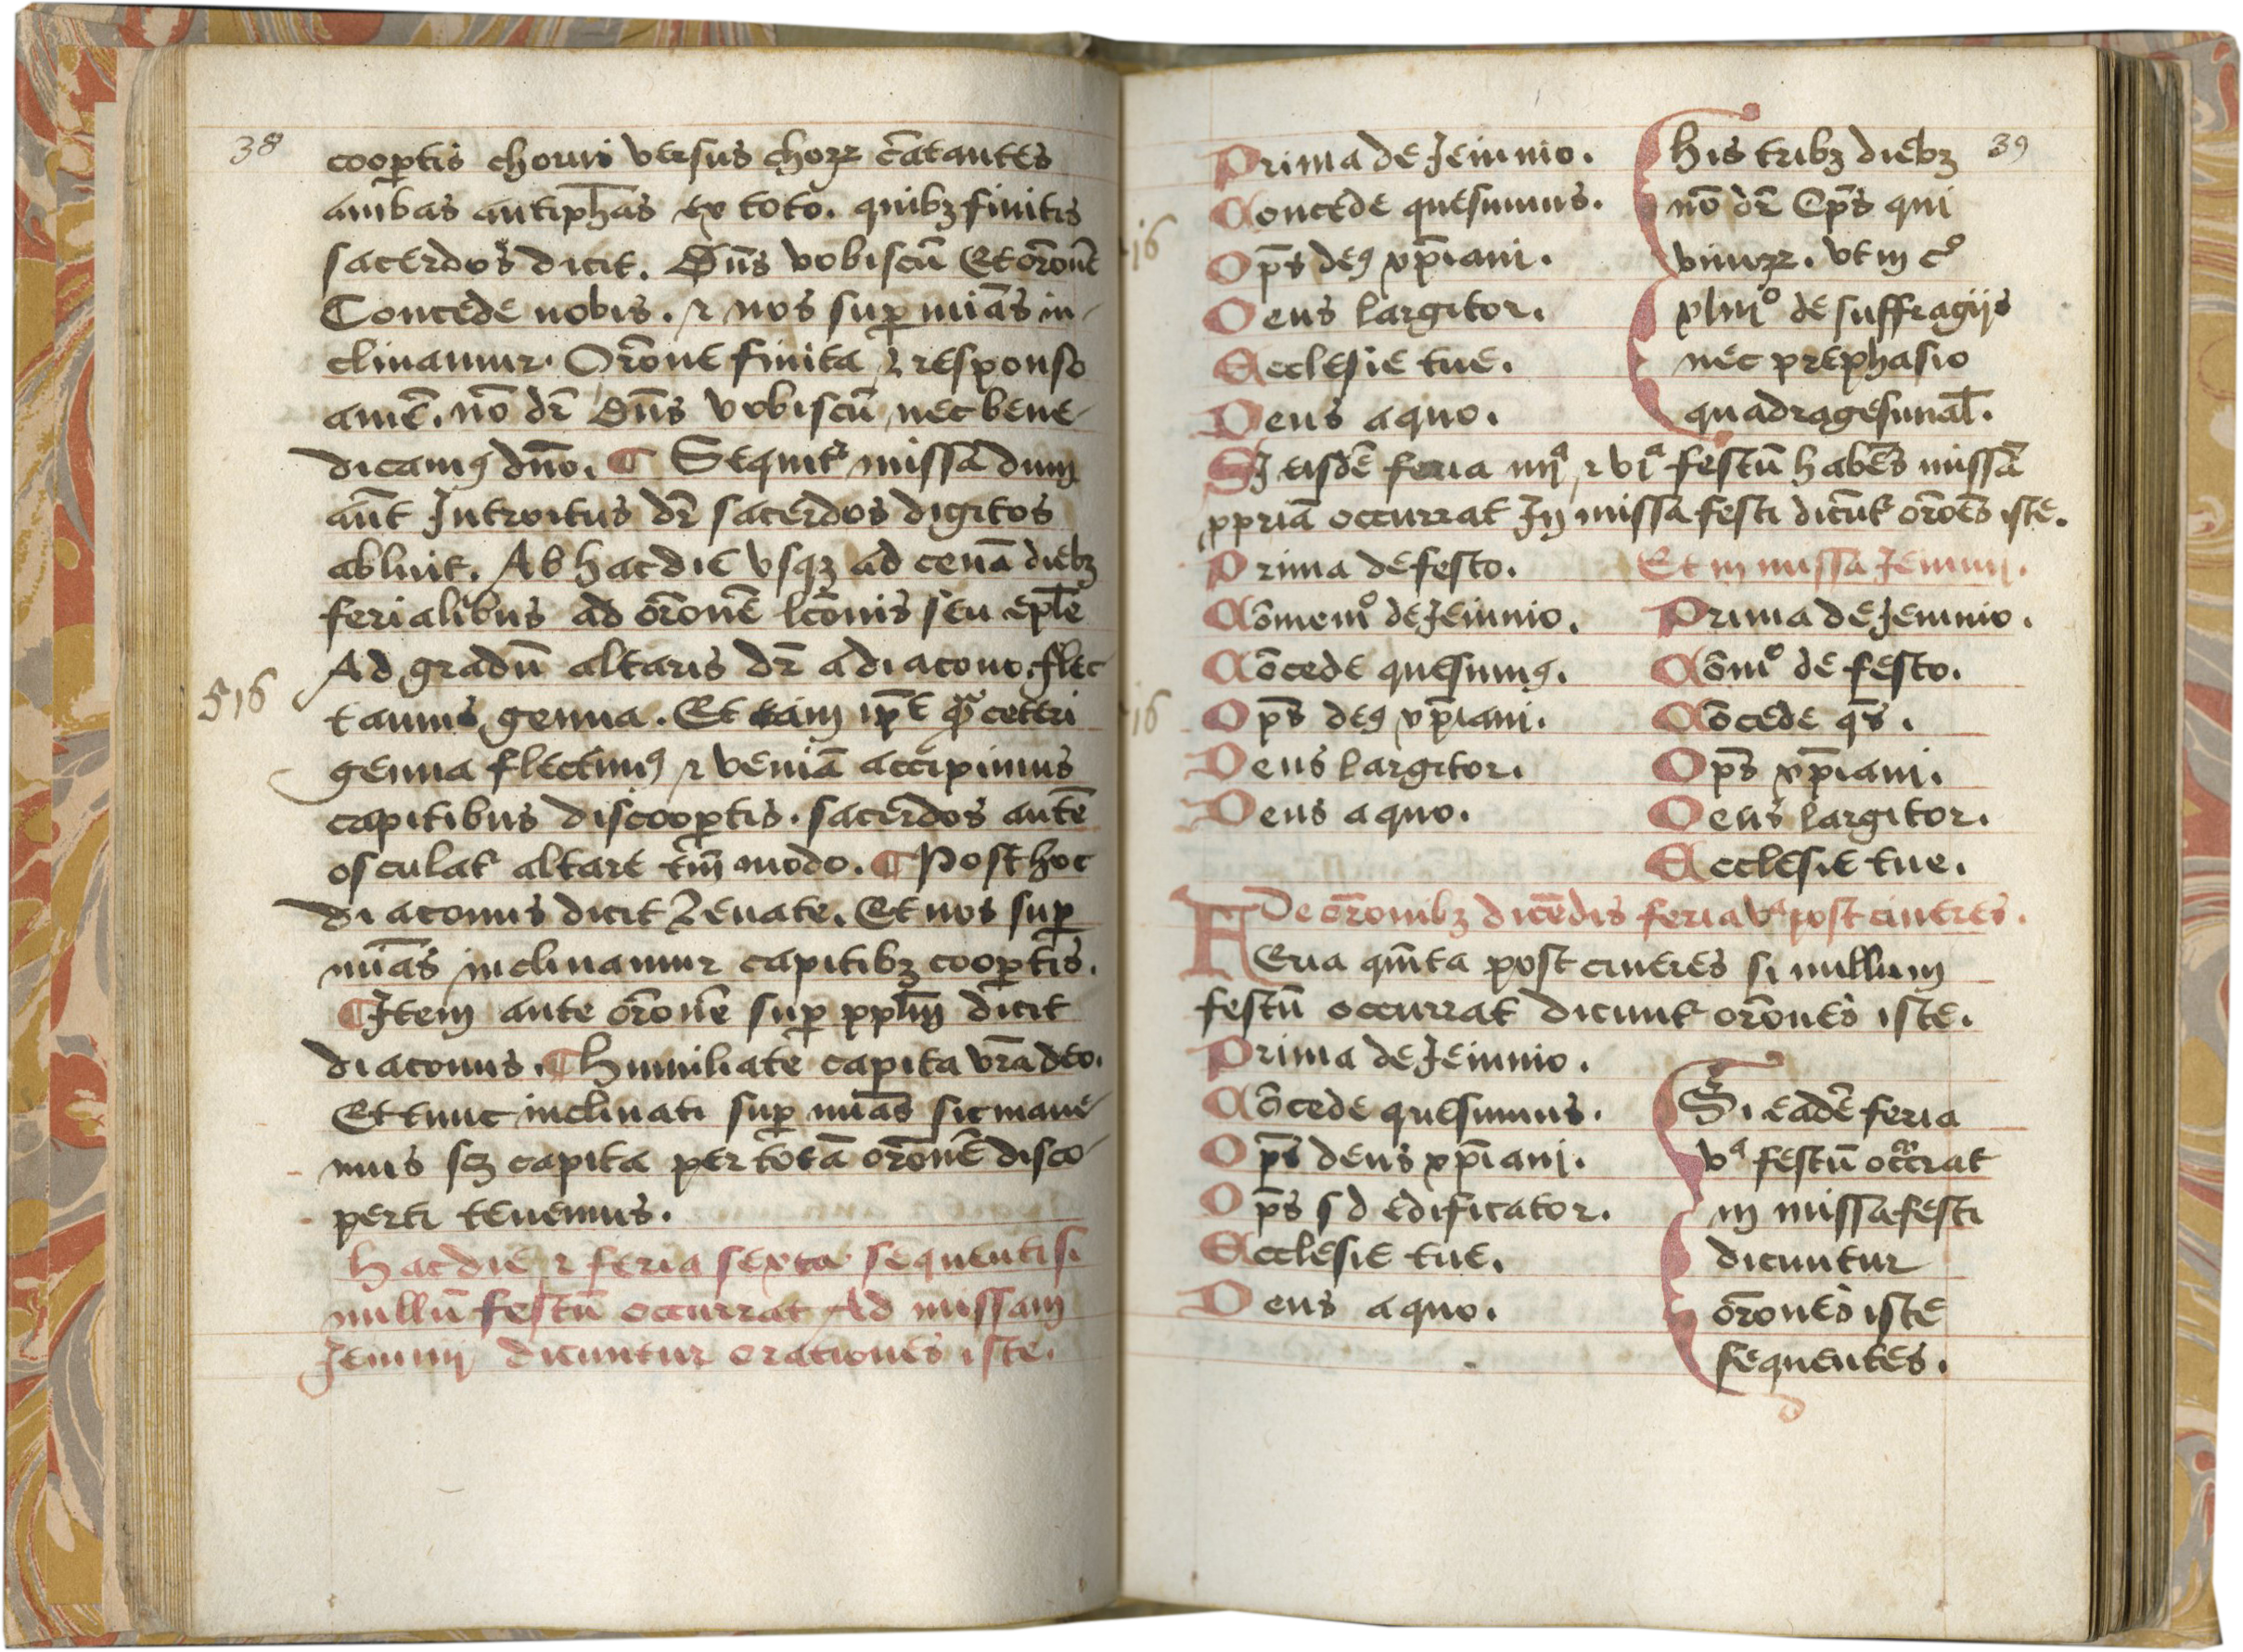 38
cooptis chorus versus choꝝ cātantes
ambas antiphās ex toto. quibꝫ finitis
sacerdos dicit. Dn̄s vobiscū Et orōnē
Concede nobis. ⁊ nos sup̱ miās in-
clinamur. Orōne finita ⁊ responso
amē. nō dr̄ Dn̄s vobiscū nec bene-
dicamꝰ dn̄o. ¶ Sequitr missa dum
aūt Introitus dr̄ sacerdos digitos
abluit. Ab hac die vsqꝫ ad cenā diebꝫ
ferialibus ad orōnē lc̄onis seu ep̄le
Ad gradū altaris dr̄ a diacono. flec-
516
tamus genua. Et tam ip̄e ceteri
genua flectimꝰ ⁊ veniā accipimus
capitibus discoop̱tis. sacerdos autē
osculat altare tm̄ modo. ¶ Post hoc
diaconus dicit Leuate. Et nos sup̱
miās inclinamur capitibꝫ coop̱tis.
¶ Item ante orōnem sup̱ pplm̄ dicit
diaconus. ¶ Humiliate capita vr̄a deo.
Et tunc inclinati sup̱ miās sic mane-
mus scꝫ capita per totā orōnē disco-
perti tenemus.
Hac die ⁊ feria sexta sequenti si
nullū festū occurrat Ad missam
Ieiunij dicuntur orationes iste.
39
Prima de Ieiunio.
Concede quesumus.
Op̄s deꝰ xp̄iani.
Deus largitor.
Ecclesie tue.
Deus a quo.
His tribꝫ diebꝫ
nō dr̄ Ep̄s qui
viuoꝝ. vt in c°
xliij° de suffragijs
nec prephasio
quadragesimal̄.
Si eisdē feria iiijª ⁊ vjª festū habēs missā
ꝓpriā occurrat In missa festi dicūt orōes iste.
Prima de festo.
Cōmem° de Ieiunio.
Cōcede quesumꝰ.
Op̄s deꝰ xp̄iani.
Deus largitor.
Deus a quo.
Et in missa Ieiunij.
Prima de Ieiunio.
Cōm° de festo.
Cōcede qs̄.
Op̄s xp̄iani.
Deus largitor.
Ecclesie tue.
De orōnibꝫ dicēdis feria vª post cineres.
Feria qm̄ta post cineres si nullum
festū occurrat dicunt orōnes iste.
Prima de Ieiunio.
Cōcede quesumus.
Op̄s deus xp̄iani.
Op̄s s d edificator.
Ecclesie tue.
Deus a quo.
Si eadē feria
vª festū occrat
in missa festi
dicuntur
orōnes iste
sequentes.